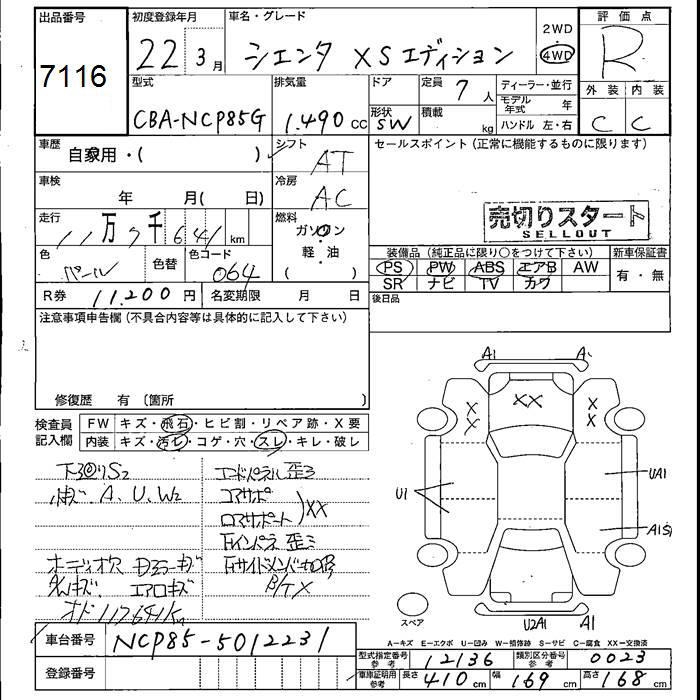 出品番号
7116
初度登録年月
22 3月
車名・グレード
シエンタ XSエディション
2WD
4WD
評価点
R
型式
CBA-NCP85G
排気量
1.490 cc
ドア
形状
SW
定員
7人
積載
kg
ディーラー・並行
モデル年式 年
ハンドル 左・右
外装 内装
C C
車歴
自家用・( )
シフト
AT
セールスポイント(正常に機能するものに限ります)
車検
年 月( 日)
冷房
AC
売切りスタート
SELLOUT
走行
11万7千641km
燃料
ガソリン
軽・油
( )
色
パール
色替
色コード
064
装備品(純正品に限り〇をつけて下さい)
PS PW ABS エアB AW
SR ナビ TV カワ
新車保証書
有・無
R券 11,200円
名変期限 月 日
後日品
注意事項申告欄(不具合内容等は具体的に記入して下さい)
修復歴 有〔箇所
検査員
記入欄
FW キズ・飛石・ヒビ割・リペア跡・X要
内装 キズ・汚レ・コゲ・穴・スレ・キレ・破レ
下廻りS2
A、U、W2
エンドパネル歪ミ
コアサポ
ロアサポート
XX
インパネ歪ミ
サイドメンバー
エアロキズ
オド117641Km
A1
XX
X
X
X
X
U1
UA1
A1S1
U2A1
A1
スペア
A-キズ E-エクボ U-凹み W-補修跡 S-サビ C-腐食 XX-交換済
車台番号
NCP85-5012231
登録番号
型式指定番号
参考
12136
類別区分番号
参考
0023
車庫証明用
参考
長さ 410cm
幅 169cm
高さ 168cm